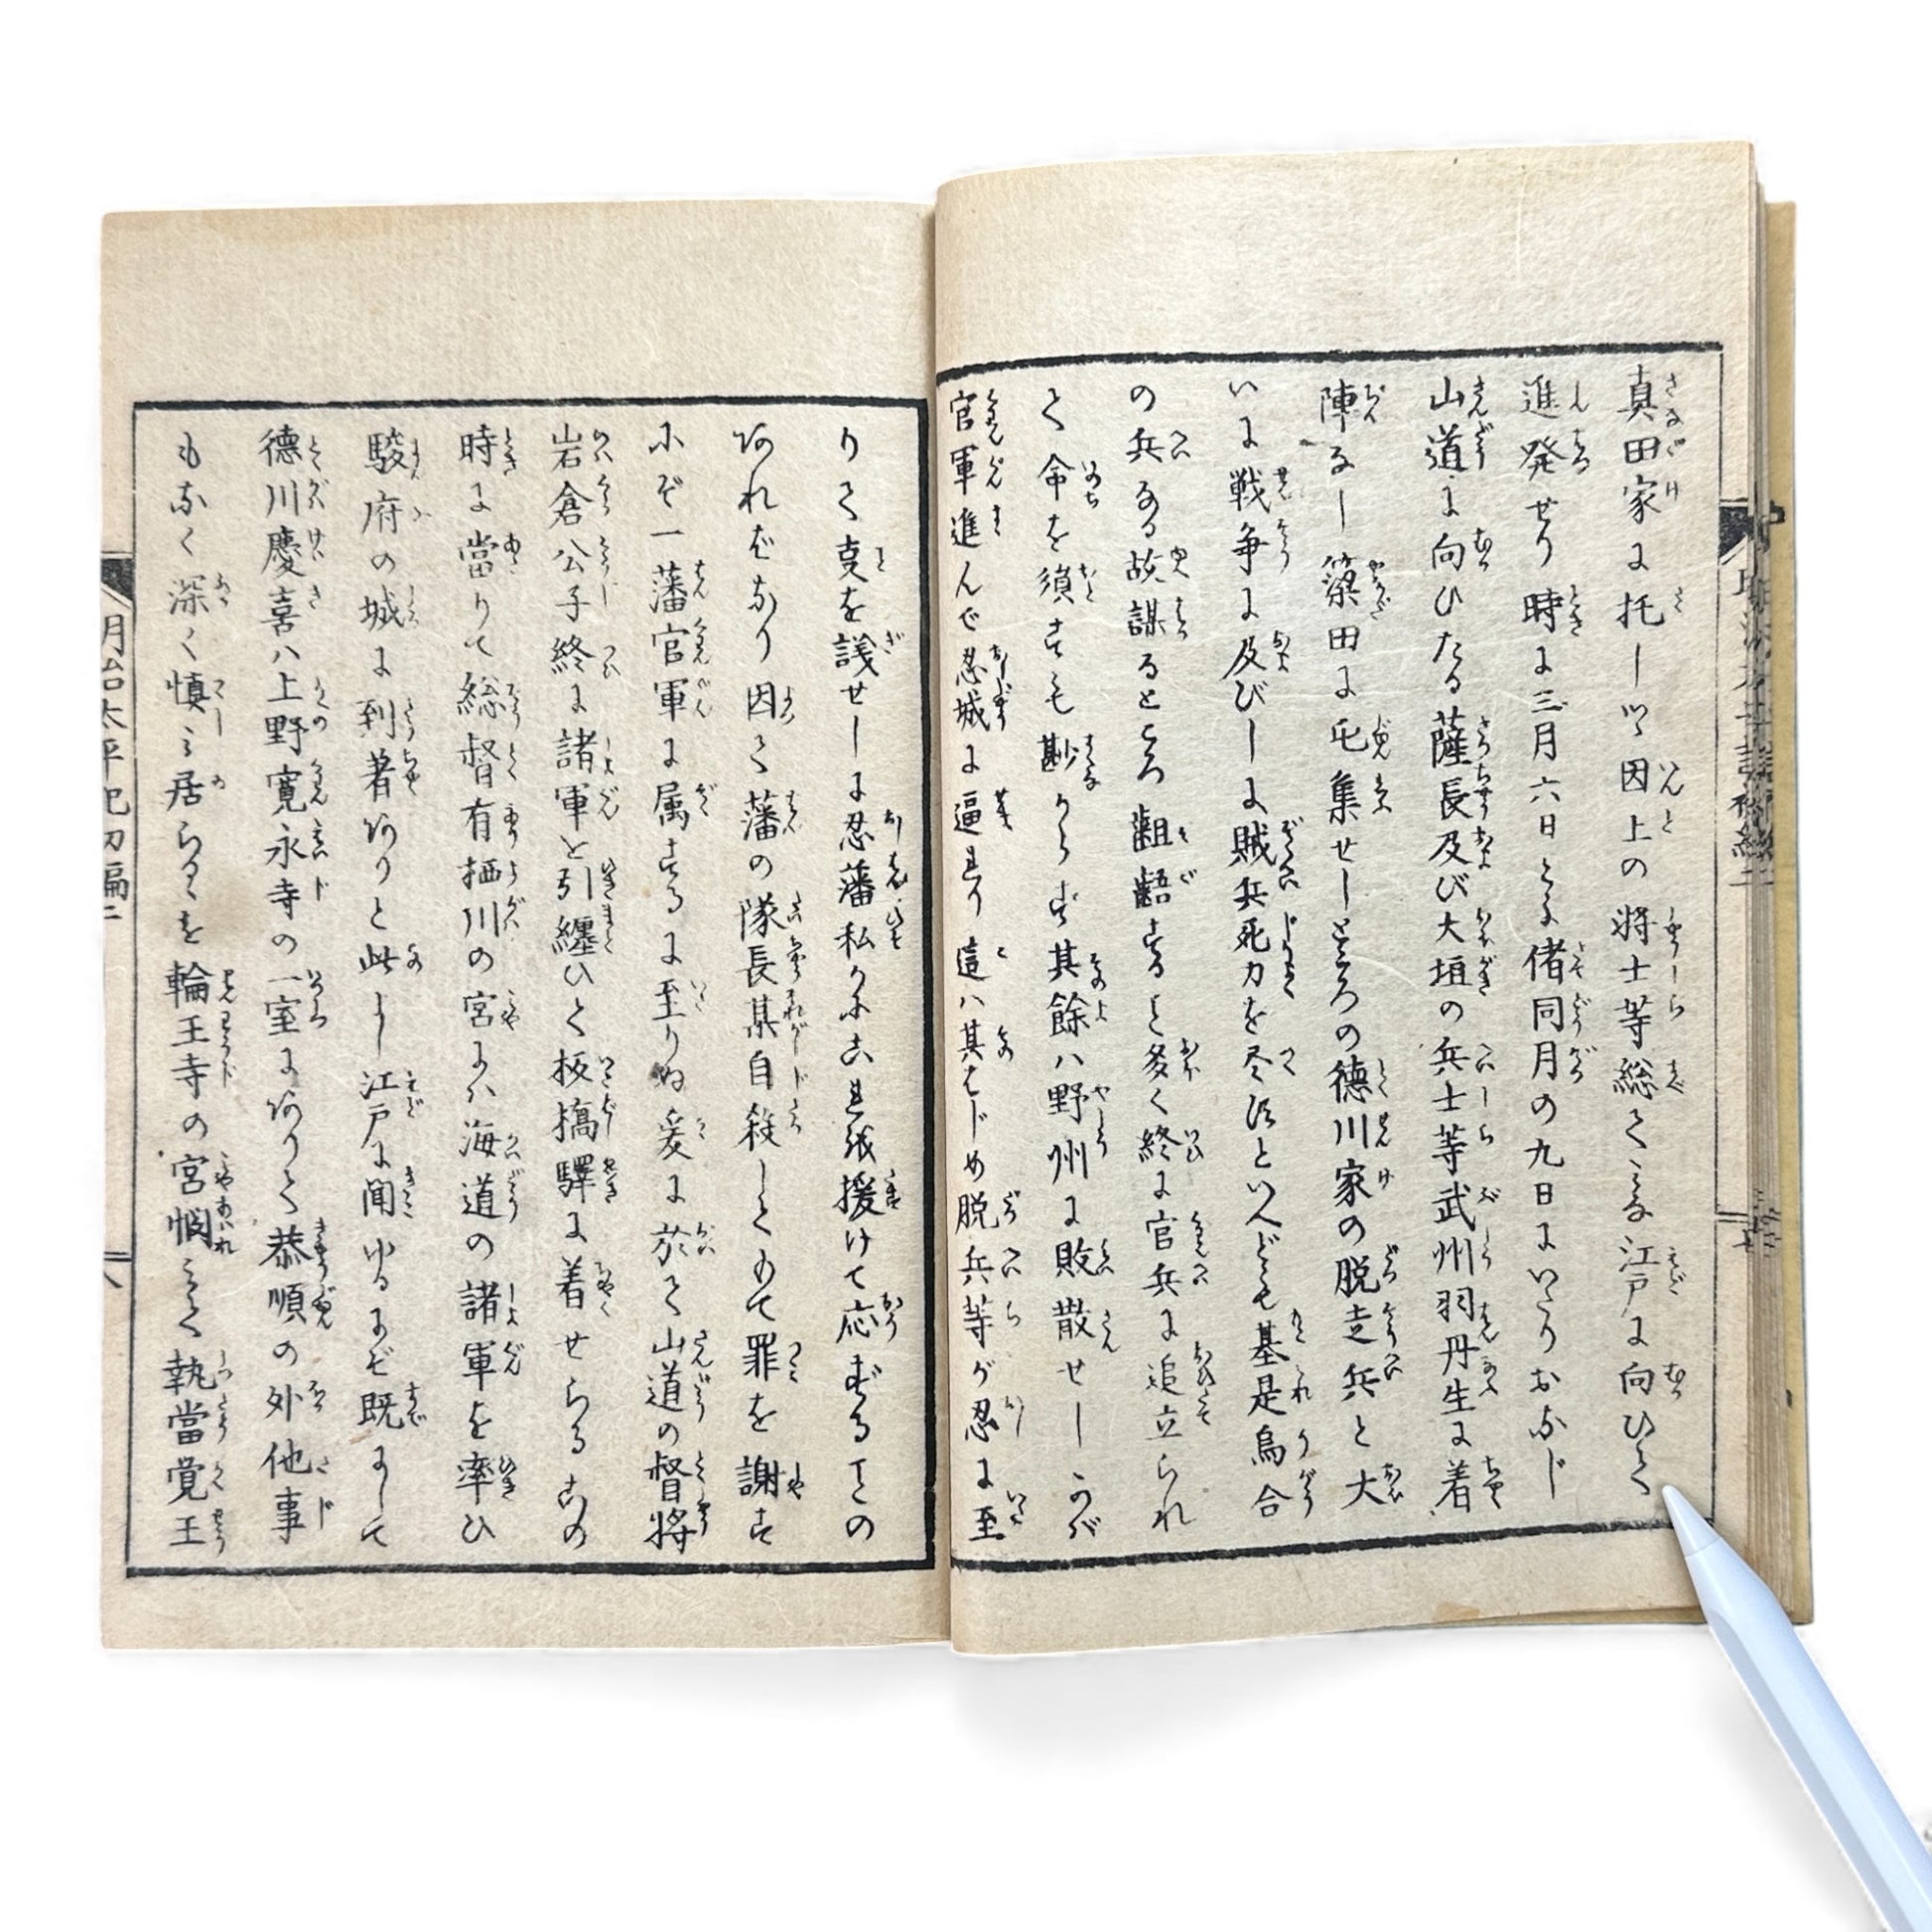 真田家に托しつゝ因上の将士等総てみな江戸に向ひて
進発せり時に三月六日とぞ偖同月の九日にいたりおなじ
山道に向ひたる薩長及び大垣の兵士等武州羽丹生に着
陣なし簗田に屯集せしところの徳川家の脱走兵と大
いに戦争に及びしに賊兵死力を尽すといへども基是烏合
の兵なる故謀るところ齟齬すること多く終に官兵に追立られ
て命を須すも尠からず其餘ハ野州に敗散せしかバ
官軍進んで忍城に逼れり這ハ其はじめ脱兵等が忍に至
りて支を議せしに忍藩私かにこれを援けて応ずるの
あれバなり因て藩の隊長某自殺してもて罪を謝す
にぞ一藩官軍に属するに至りぬ爰に於て山道の督将
岩倉公子終に諸軍を引纏ひて板橋驛に着せらるこの
時に當りて総督有栖川の宮にハ海道の諸軍を率ひ
駿府の城に到著ありと此よし江戸に聞ゆるにぞ既にして
徳川慶喜ハ上野寛永寺の一室にありて恭順の外他事
もなく深く慎み居らるゝを輪王寺の宮憫みて執當覚王
明治太平記初編二
八